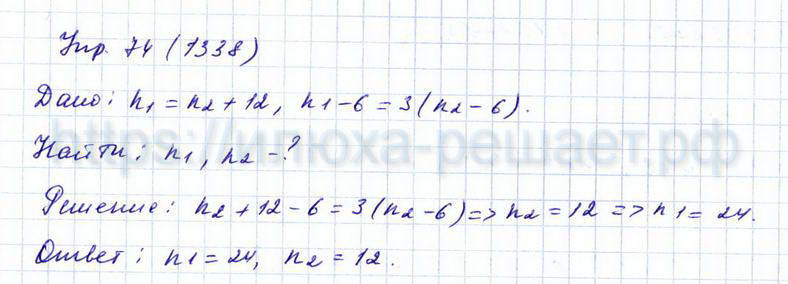 Упр. 74 (1338)
Дано: n₁ = n₂ + 12, n₁ - 6 = 3(n₂ - 6).
https://илюха-решает.рф
Найти: n₁, n₂ - ?
Решение: n₂ + 12 - 6 = 3(n₂ - 6) => n₂ = 12 => n₁ = 24.
Ответ: n₁ = 24, n₂ = 12.